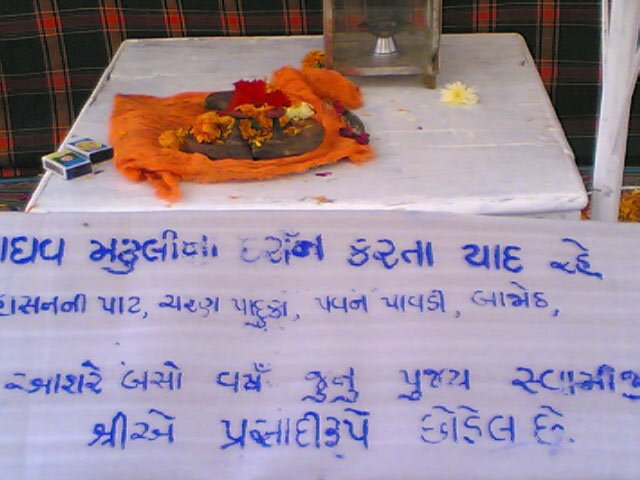 દર્શન કરતા યાદ રહે
પાટ, ચરણ પાદુકા, પવન પાવડી, બાજોઠ,
આશરે બસો વર્ષ જુનુ પુજ્ય સ્વામીજી
શ્રીએ પ્રસાદીરૂપે છોડેલ છે.